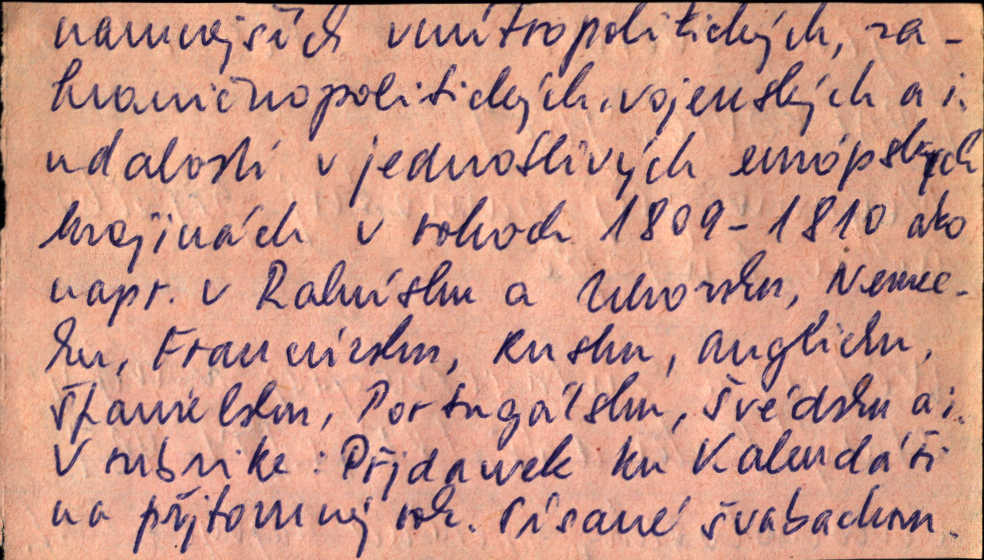 namnejších vnútropolitických, za-
hraničnopolitických, vojenských a i.
udalostí v jednotlivých európskych
krajinách v rokoch 1809-1810 ako
napr. v Rakúsku a Uhorsku, Nemec-
ku, Francúzsku, Rusku, Anglicku,
Španielsku, Portugalsku, Švédsku a i.
V rubrike: Přjdawek ku Kalendáři
na přjtomný rok. Písané švabachom.